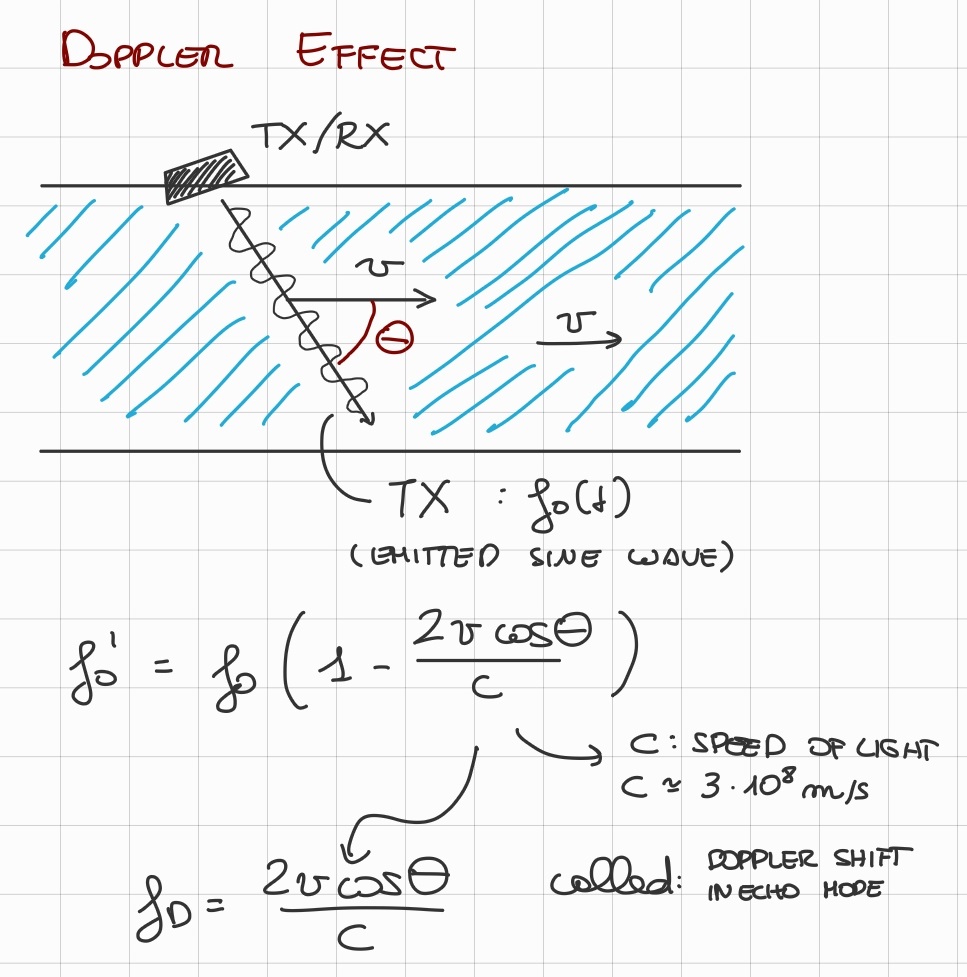 DOPPLER EFFECT
TX/RX
v
θ
v
TX : f₀(t)
(EMITTED SINE WAVE)
f₀' = f₀ (1 - 2v cosθ / C)
C: SPEED OF LIGHT
C ≃ 3·10⁸ m/s
f_D = 2v cosθ / C
called: DOPPLER SHIFT
IN ECHO MODE